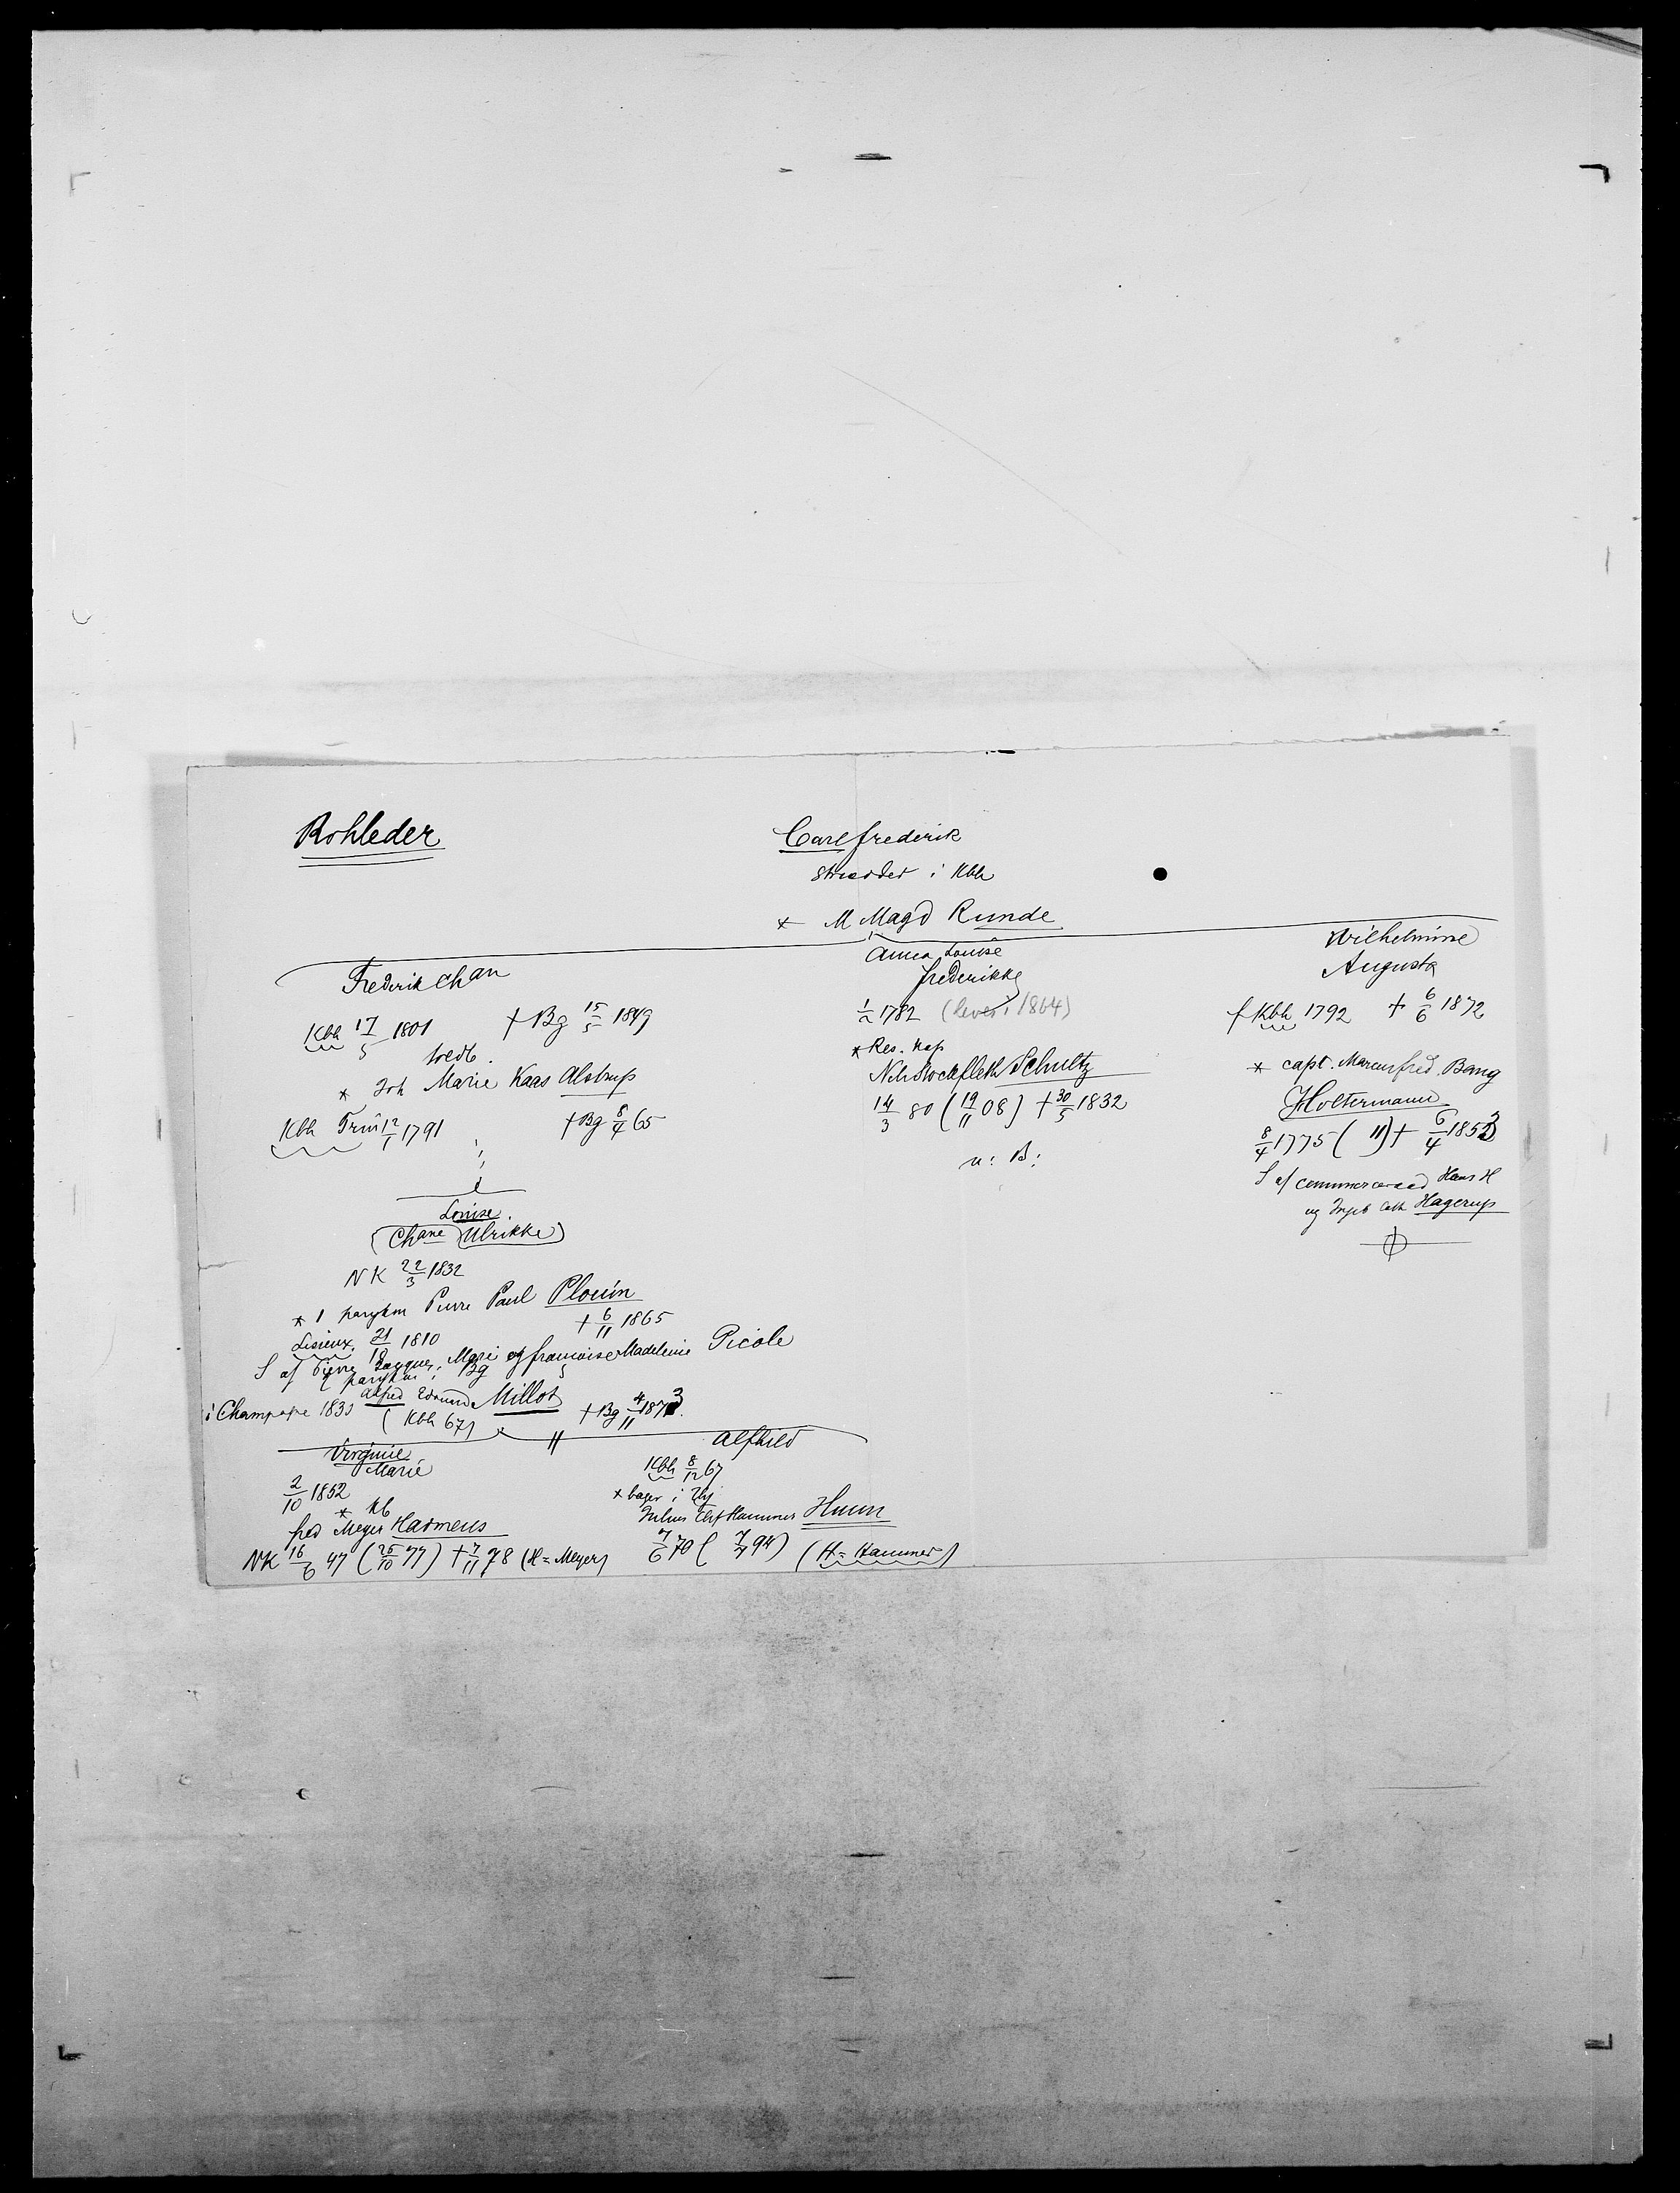 Rohleder
Carl Frederik
i Kbh
* M Magd Runde
Frederik Chan
Kbh 17/5 1801 † Bg 15/5 1849
* Joh Marie Kaas Alstrup
Kbh Trin 12/1 1791 † Bg 8/4 65
Louise
(Chane Ulrikke)
NK 22/3 1832
* 1 parykm Pierre Paul Plouin
Lisieux 21/10 1810 † 6/11 1865
S af Pierre Jacques Marie og Francoise Madeleine Picole
2 parykm i Bg
Alfred Edmund Millot
i Champagne 1833 (Kbh 67) † Bg 4/11 1873
Virginie
Marie
2/10 1852
* kb
fred Meyer Harmens
NK 16/6 47 (25/10 77) † 7/11 78 (H = Meyer)
Alfhild
Kbh 8/12 67
* bager i
Julius Chr Hammer Huun
7/6 70 (7/7 94) (H = Hammer)
Anna Louise
Frederikke
1782 (lever i 1864)
* Res. kap
Nils Stockfleth Schultz
14/3 80 (19/11 08) † 30/5 1832
u: B:
Wilhelmine
Augusta
f Kbh 1792 † 6/6 1872
* capt. Marcus fred. Bang
Holtermann
8/4 1775 ( 11) † 6/4 1853
S af commerceraad Hans H
og Ingeb Cath Hagerup